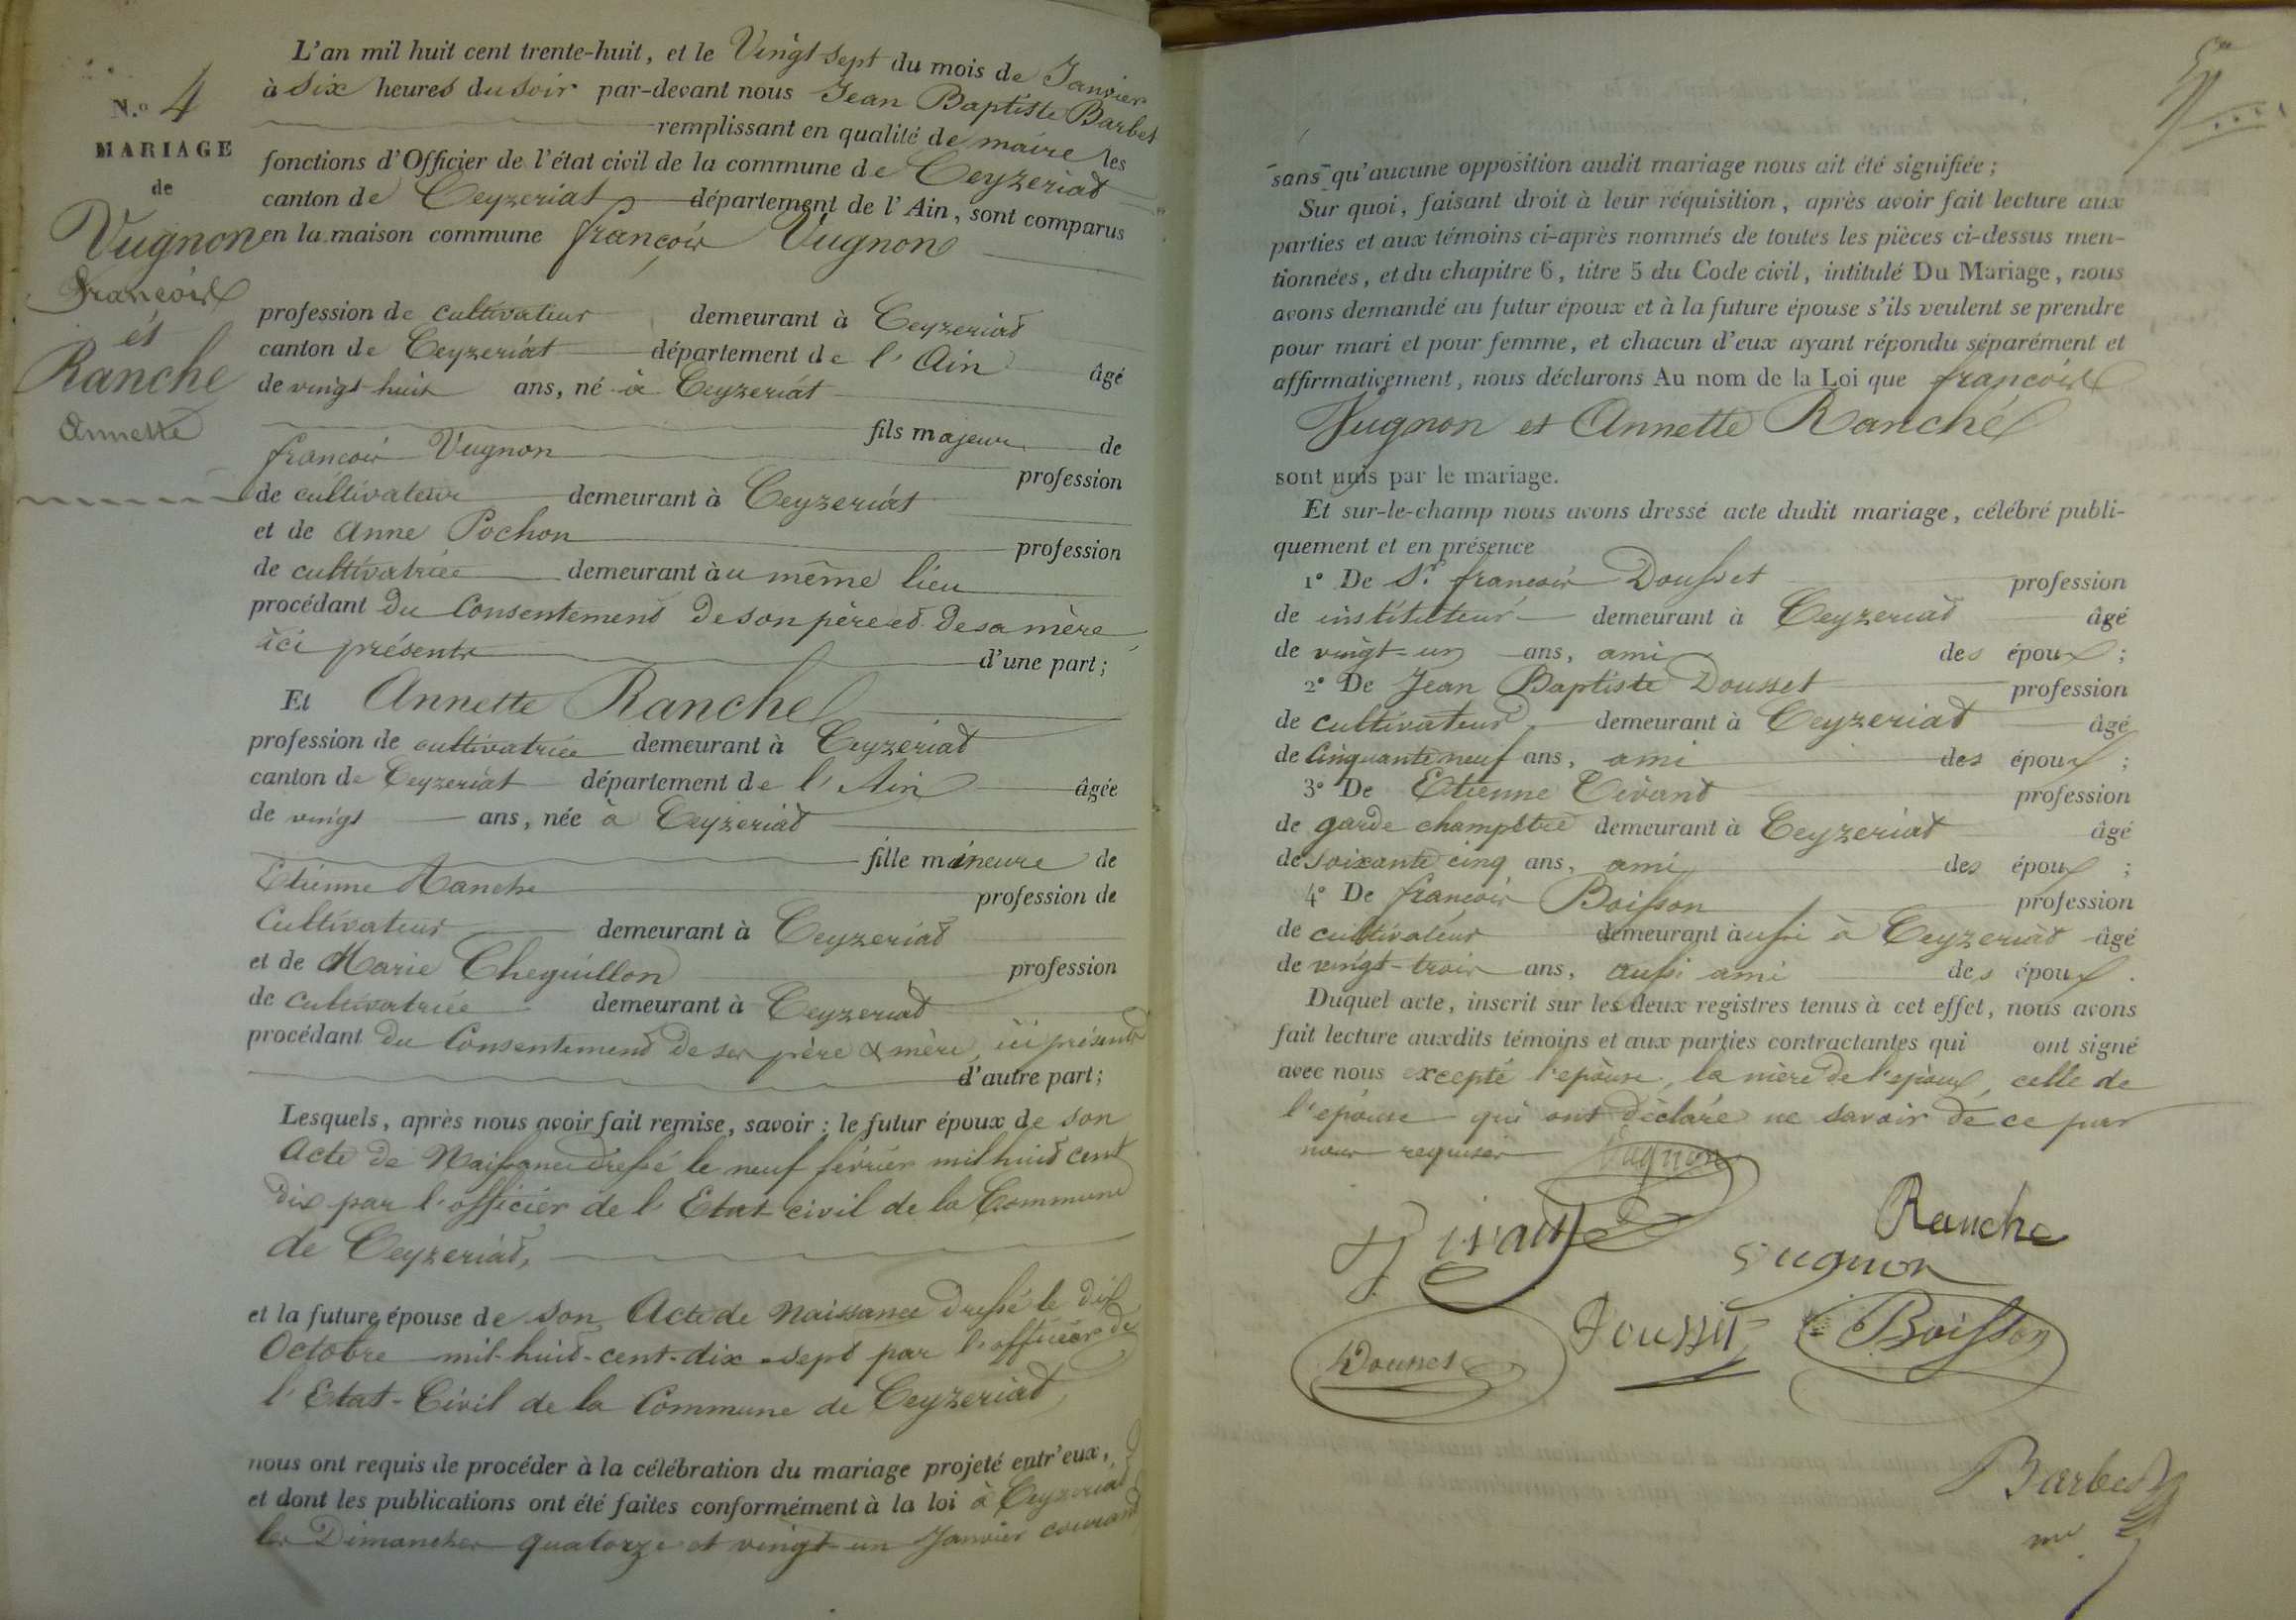 N.º 4
MARIAGE
de
Vugnon
François
et
Ranche
Annette
L'an mil huit cent trente-huit, et le Vingt sept du mois de Janvier
à six heures du soir par-devant nous Jean Baptiste Barbet
remplissant en qualité de maire les
fonctions d'Officier de l'état civil de la commune de Ceyzeriat
canton de Ceyzeriat département de l'Ain, sont comparus
en la maison commune françois Vugnon
profession de cultivateur demeurant à Ceyzeriat
canton de Ceyzeriat département de l'Ain âgé
de vingt huit ans, né à Ceyzeriat
fils majeur de
françois Vugnon profession
de cultivateur demeurant à Ceyzeriat
et de Anne Pochon profession
de cultivatrice demeurant au même lieu
procédant du Consentement de son père et de sa mère
ici présents d'une part;
Et Annette Ranche
profession de cultivatrice demeurant à Ceyzeriat
canton de Ceyzeriat département de l'Ain âgée
de vingt ans, née à Ceyzeriat
fille mineure de
Etienne Ranche profession de
Cultivateur demeurant à Ceyzeriat
et de Marie Cheguillon profession
de cultivatrice demeurant à Ceyzeriat
procédant du Consentement de ses père & mère, ici présents
d'autre part;
Lesquels, après nous avoir fait remise, savoir: le futur époux de son
Acte de Naissance dressé le neuf février mil huit cent
dix par l'officier de l'Etat civil de la Commune
de Ceyzeriat,
et la future épouse de son Acte de Naissance dressé le dix
Octobre mil-huit-cent-dix-sept par l'officier de
l'Etat-Civil de la Commune de Ceyzeriat
nous ont requis de procéder à la célébration du mariage projeté entr'eux,
et dont les publications ont été faites conformément à la loi à Ceyzeriat
les Dimanches quatorze et vingt-un Janvier courant
sans qu'aucune opposition audit mariage nous ait été signifiée;
Sur quoi, faisant droit à leur réquisition, après avoir fait lecture aux
parties et aux témoins ci-après nommés de toutes les pièces ci-dessus men-
tionnées, et du chapitre 6, titre 5 du Code civil, intitulé Du Mariage, nous
avons demandé au futur époux et à la future épouse s'ils veulent se prendre
pour mari et pour femme, et chacun d'eux ayant répondu séparément et
affirmativement, nous déclarons Au nom de la Loi que françois
Vugnon et Annette Ranche
sont unis par le mariage.
Et sur-le-champ nous avons dressé acte dudit mariage, célébré publi-
quement et en présence
1º De S.r françois Dousset profession
de instituteur demeurant à Ceyzeriat âgé
de vingt-un ans, ami des époux;
2º De Jean Baptiste Dousset profession
de cultivateur demeurant à Ceyzeriat âgé
de Cinquante neuf ans, ami des époux;
3º De Etienne Civant profession
de garde champêtre demeurant à Ceyzeriat âgé
de soixante cinq ans, ami des époux;
4º De françois Boisson profession
de cultivateur demeurant aussi à Ceyzeriat âgé
de vingt-trois ans, aussi ami des époux.
Duquel acte, inscrit sur les deux registres tenus à cet effet, nous avons
fait lecture auxdits témoins et aux parties contractantes qui ont signé
avec nous excepté l'epouse, la mère de l'epoux, celle de
l'epouse qui ont déclaré ne savoir de ce par
nous requises
Vugnon
Ranche
Vugnon
Dousset
Boisson
Dousset
Barbet